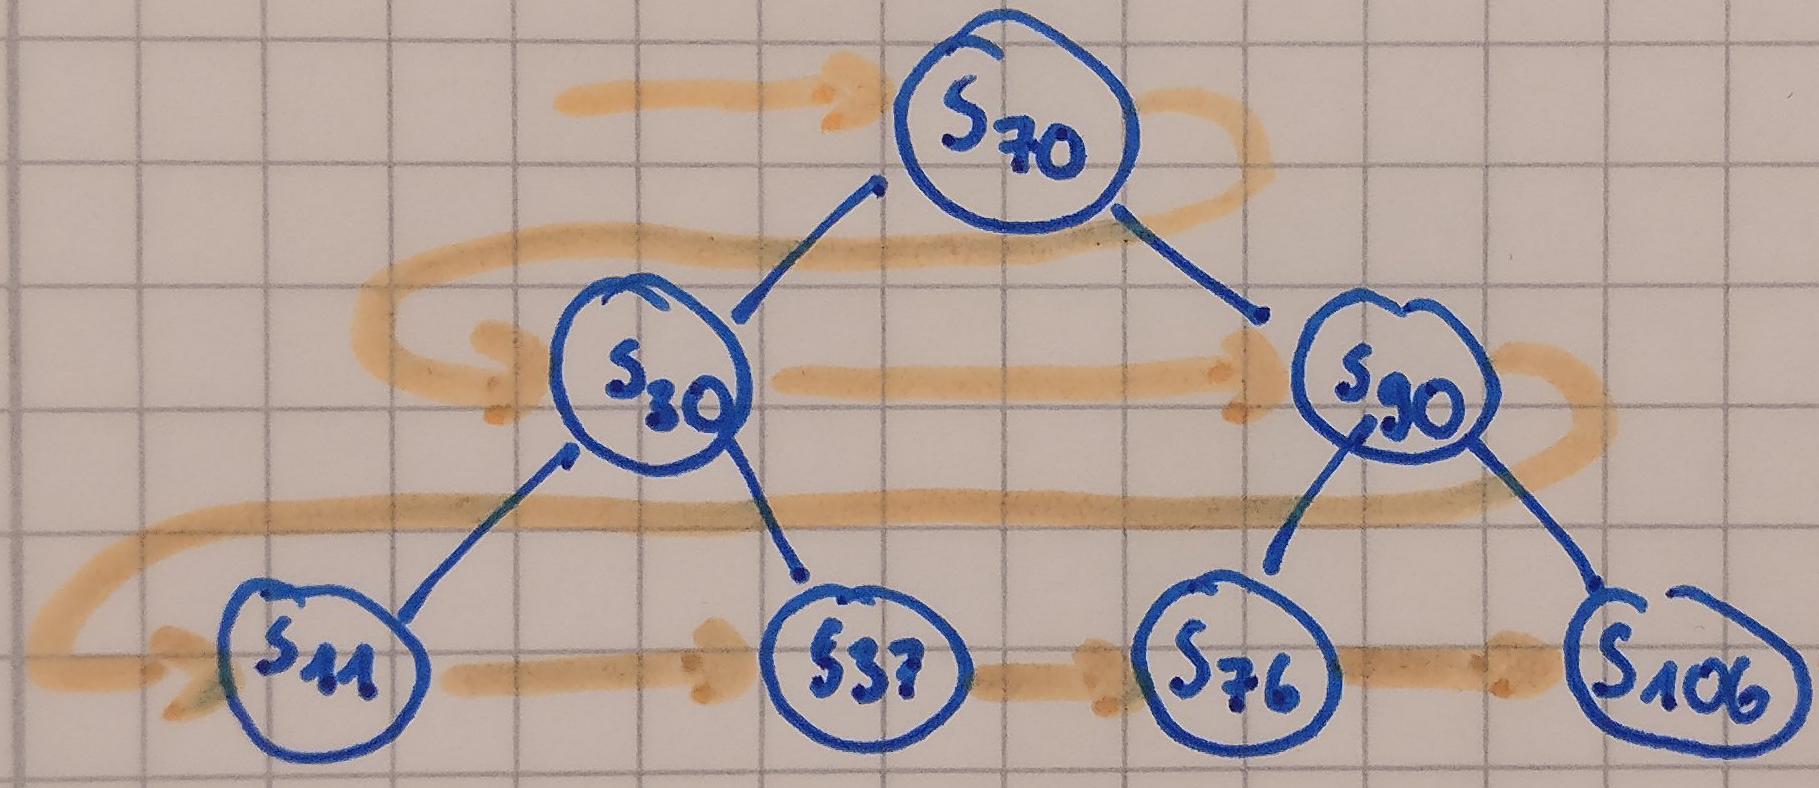 S70
S30 S90
S11 S37 S76 S106